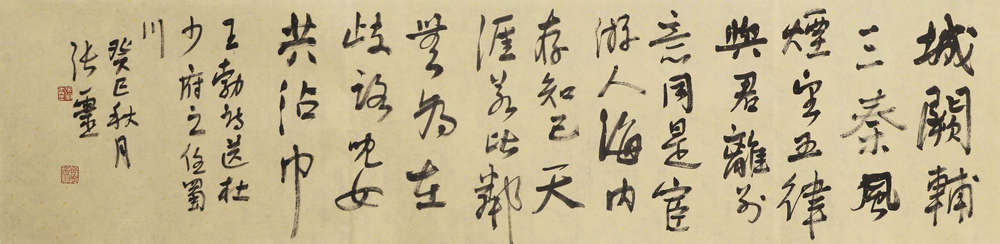 城闕輔
三秦風
煙望五律
與君離别
意同是宦
游人海内
存知己天
涯若比鄰
無為在
歧路兒女
共沾巾
王勃詩送杜
少府之任蜀
川
癸巳秋月
张靈